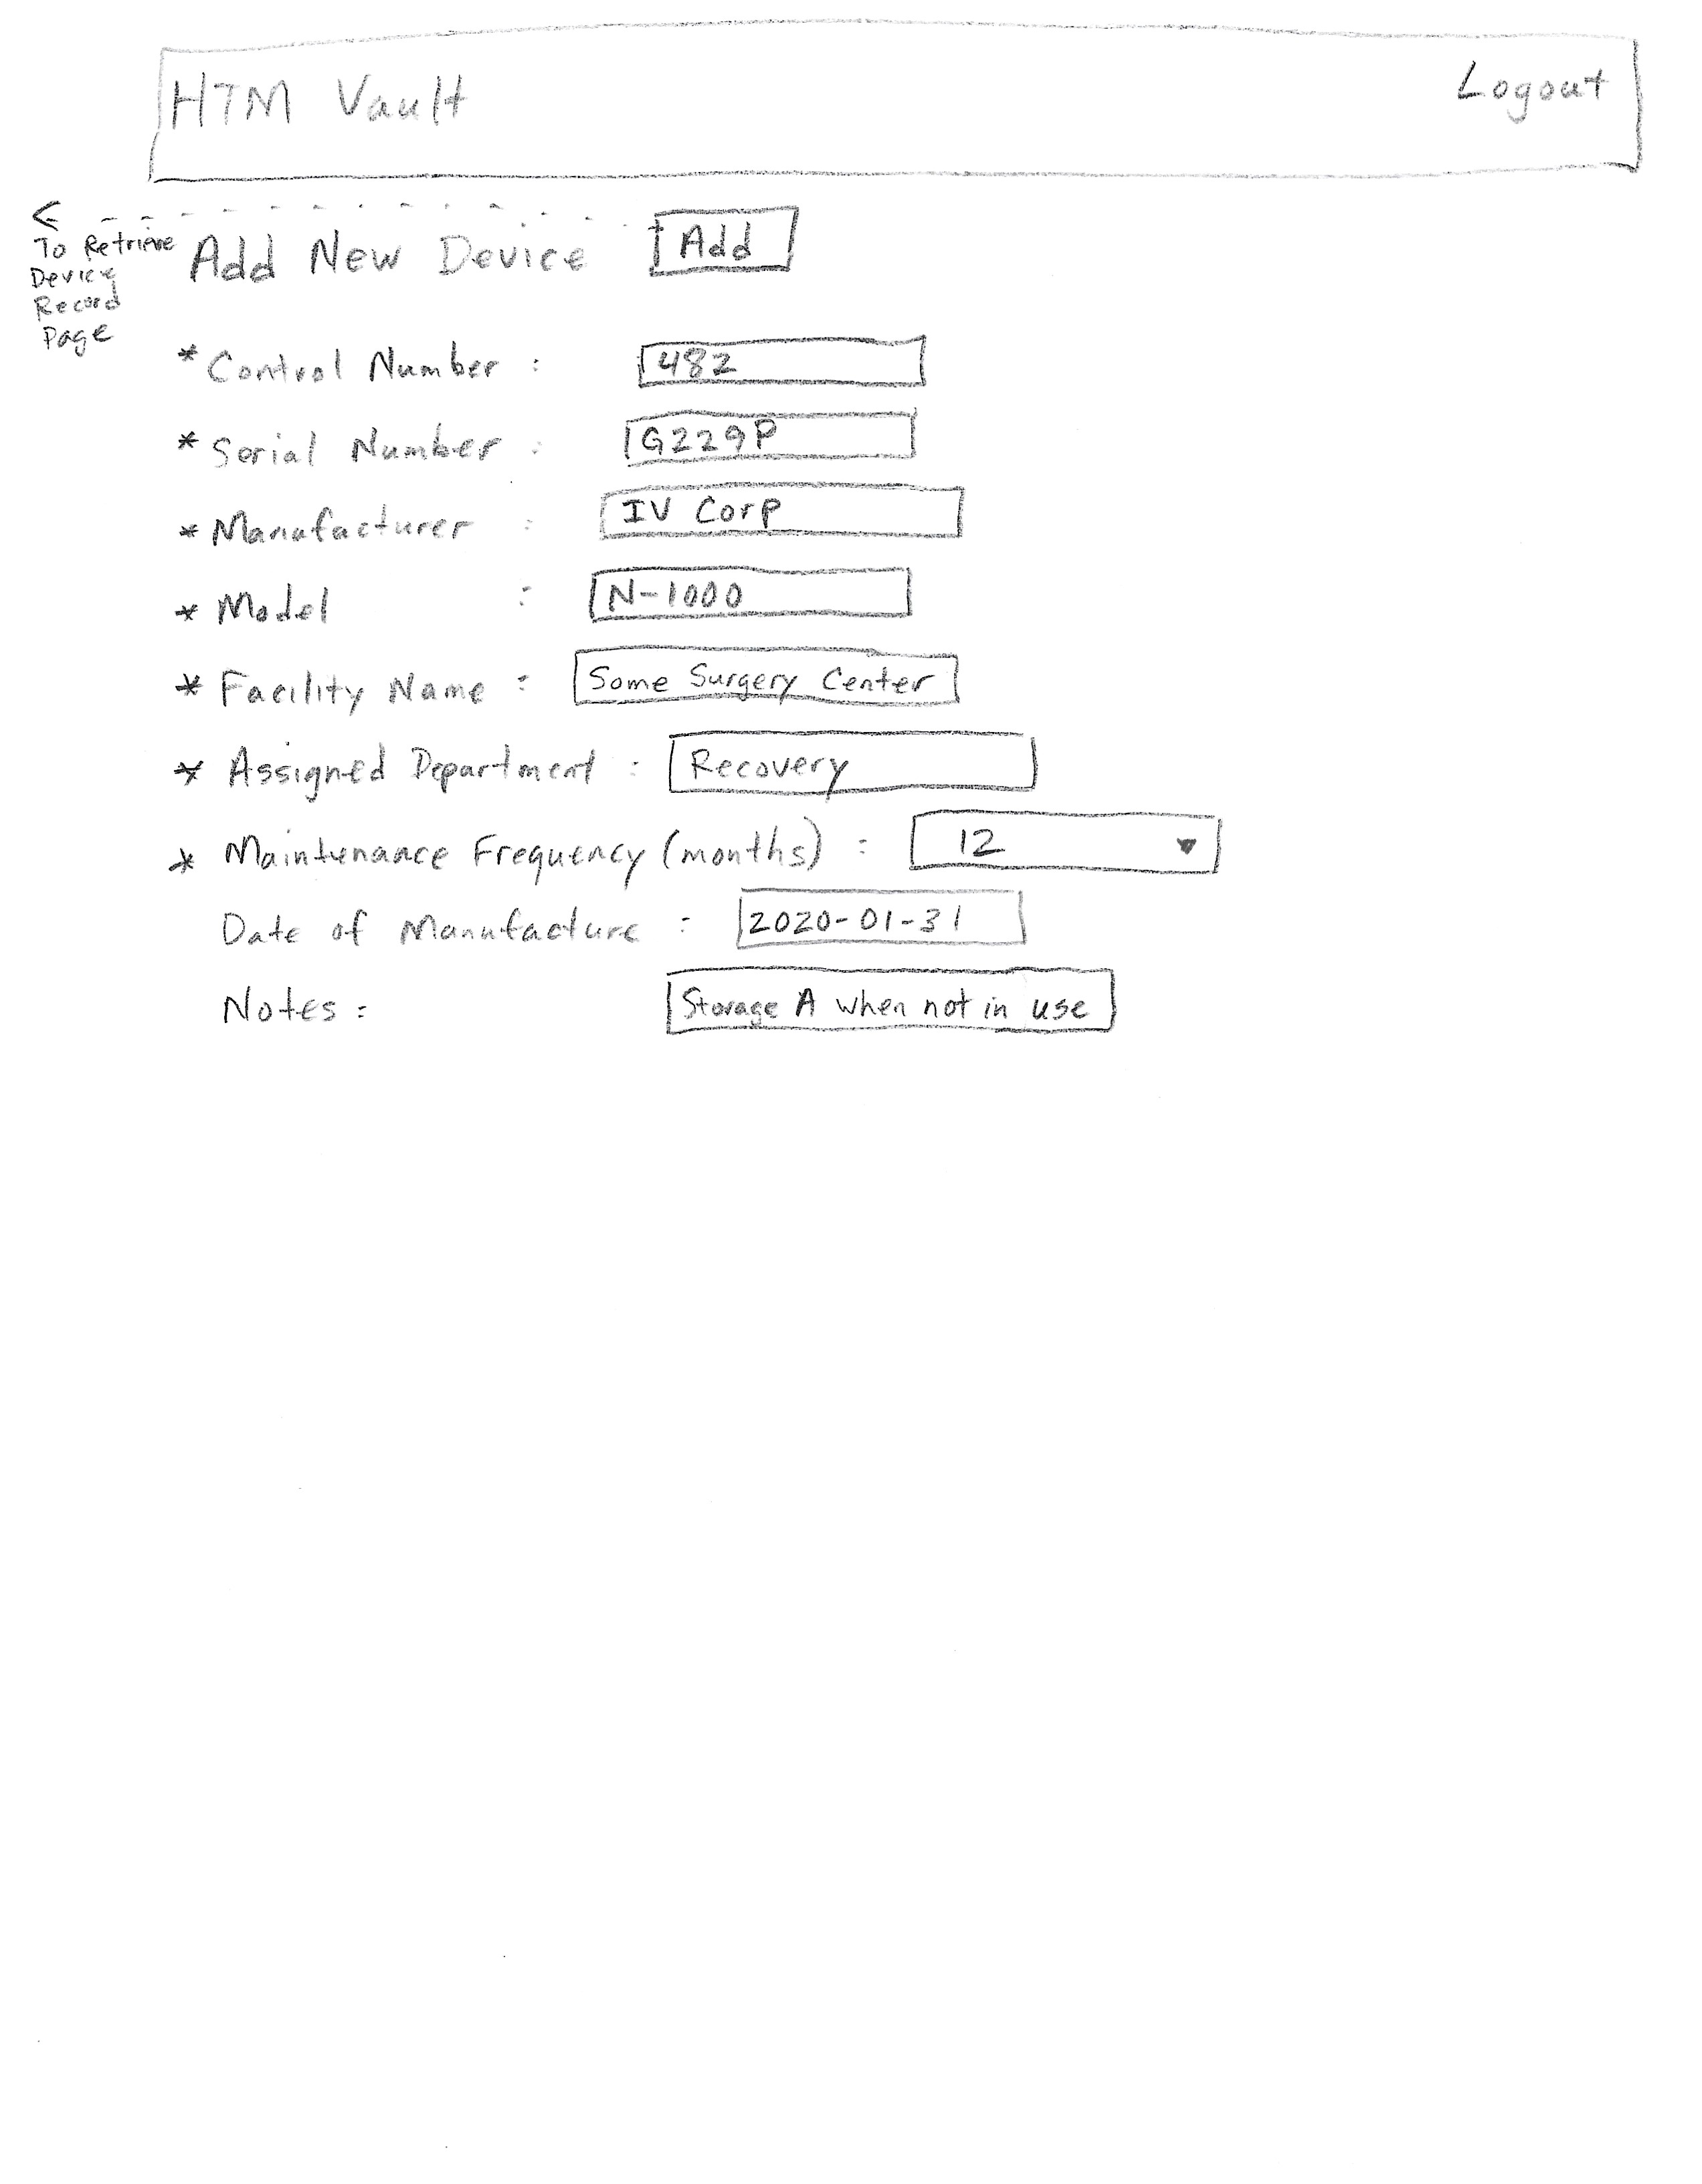 HTM Vault Logout
To Retrieve Device Record Page
Add New Device Add
* Control Number : 482
* Serial Number : G229P
* Manufacturer : IV Corp
* Model : N-1000
* Facility Name : Some Surgery Center
* Assigned Department : Recovery
* Maintenance Frequency (months) : 12
Date of Manufacture : 2020-01-31
Notes : Storage A when not in use